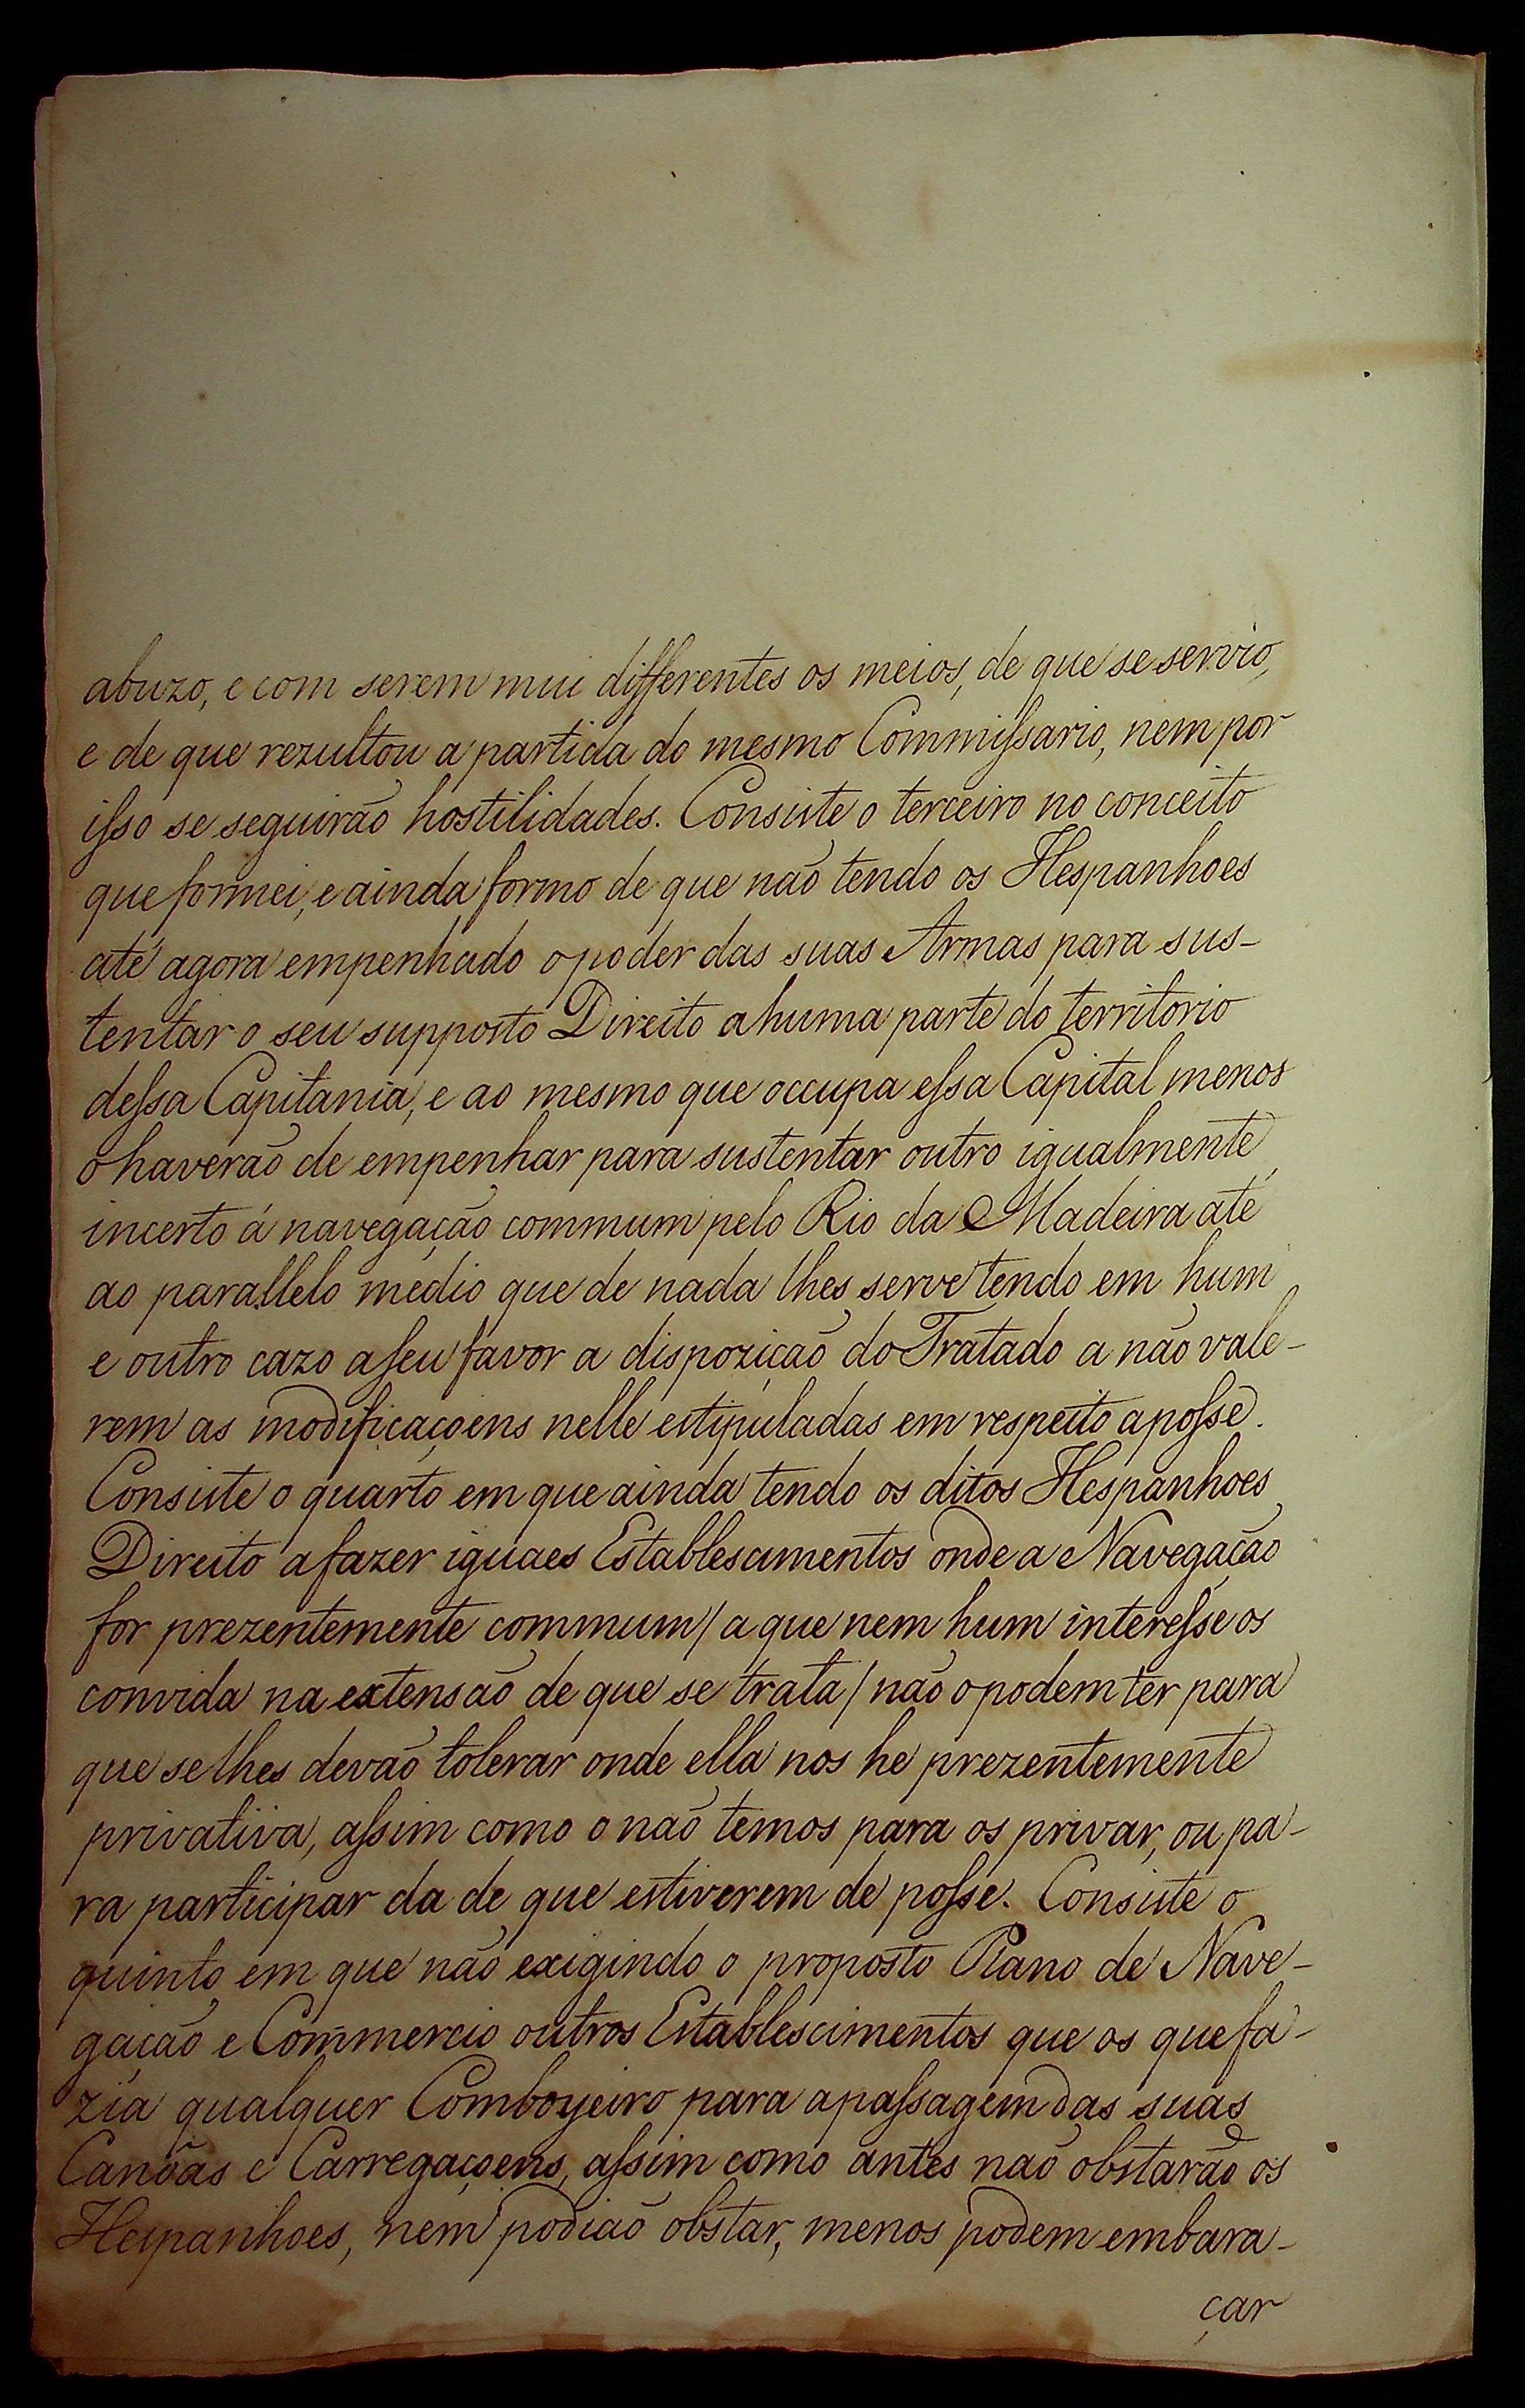 abuzo, e com serem mui differentes os meios, de que se servio,
e de que rezultou a partida do mesmo Commissario, nem por
isso se seguirão hostilidades. Consiste o terceiro no conceito
que formei, e ainda formo de que não tendo os Hespanhoes
até agora empenhado o poder das suas Armas para sus-
tentar o seu supposto Direito a huma parte do territorio
dessa Capitania, e ao mesmo que occupa essa Capital menos
o haverão de empenhar para sustentar outro igualmente
incerto á navegação commum pelo Rio da Madeira até
ao parallelo médio que de nada lhes serve tendo em hum
e outro cazo a seu favor a dispozição do Tratado a não vale-
rem as modificaçoens nelle estipuladas em respeito a posse.
Consiste o quarto em que ainda tendo os ditos Hespanhoes
Direito a fazer iguaes Establescimentos onde a Navegação
for prezentemente commum / a que nem hum interesse os
convida na extensão de que se trata / não o podem ter para
que se lhes devão tolerar onde ella nos he prezentemente
privativa, assim como o não temos para os privar, ou pa-
ra participar da de que estiverem de posse. Consiste o
quinto em que não exigindo o proposto Plano de Nave-
gação e Commercio outros Establescimentos que os que fa-
zia qualquer Comboyeiro para a passagem das suas
Canôas e Carregaçoens, assim como antes não obstarão os
Hespanhoes, nem podião obstar, menos podem embara-
çar